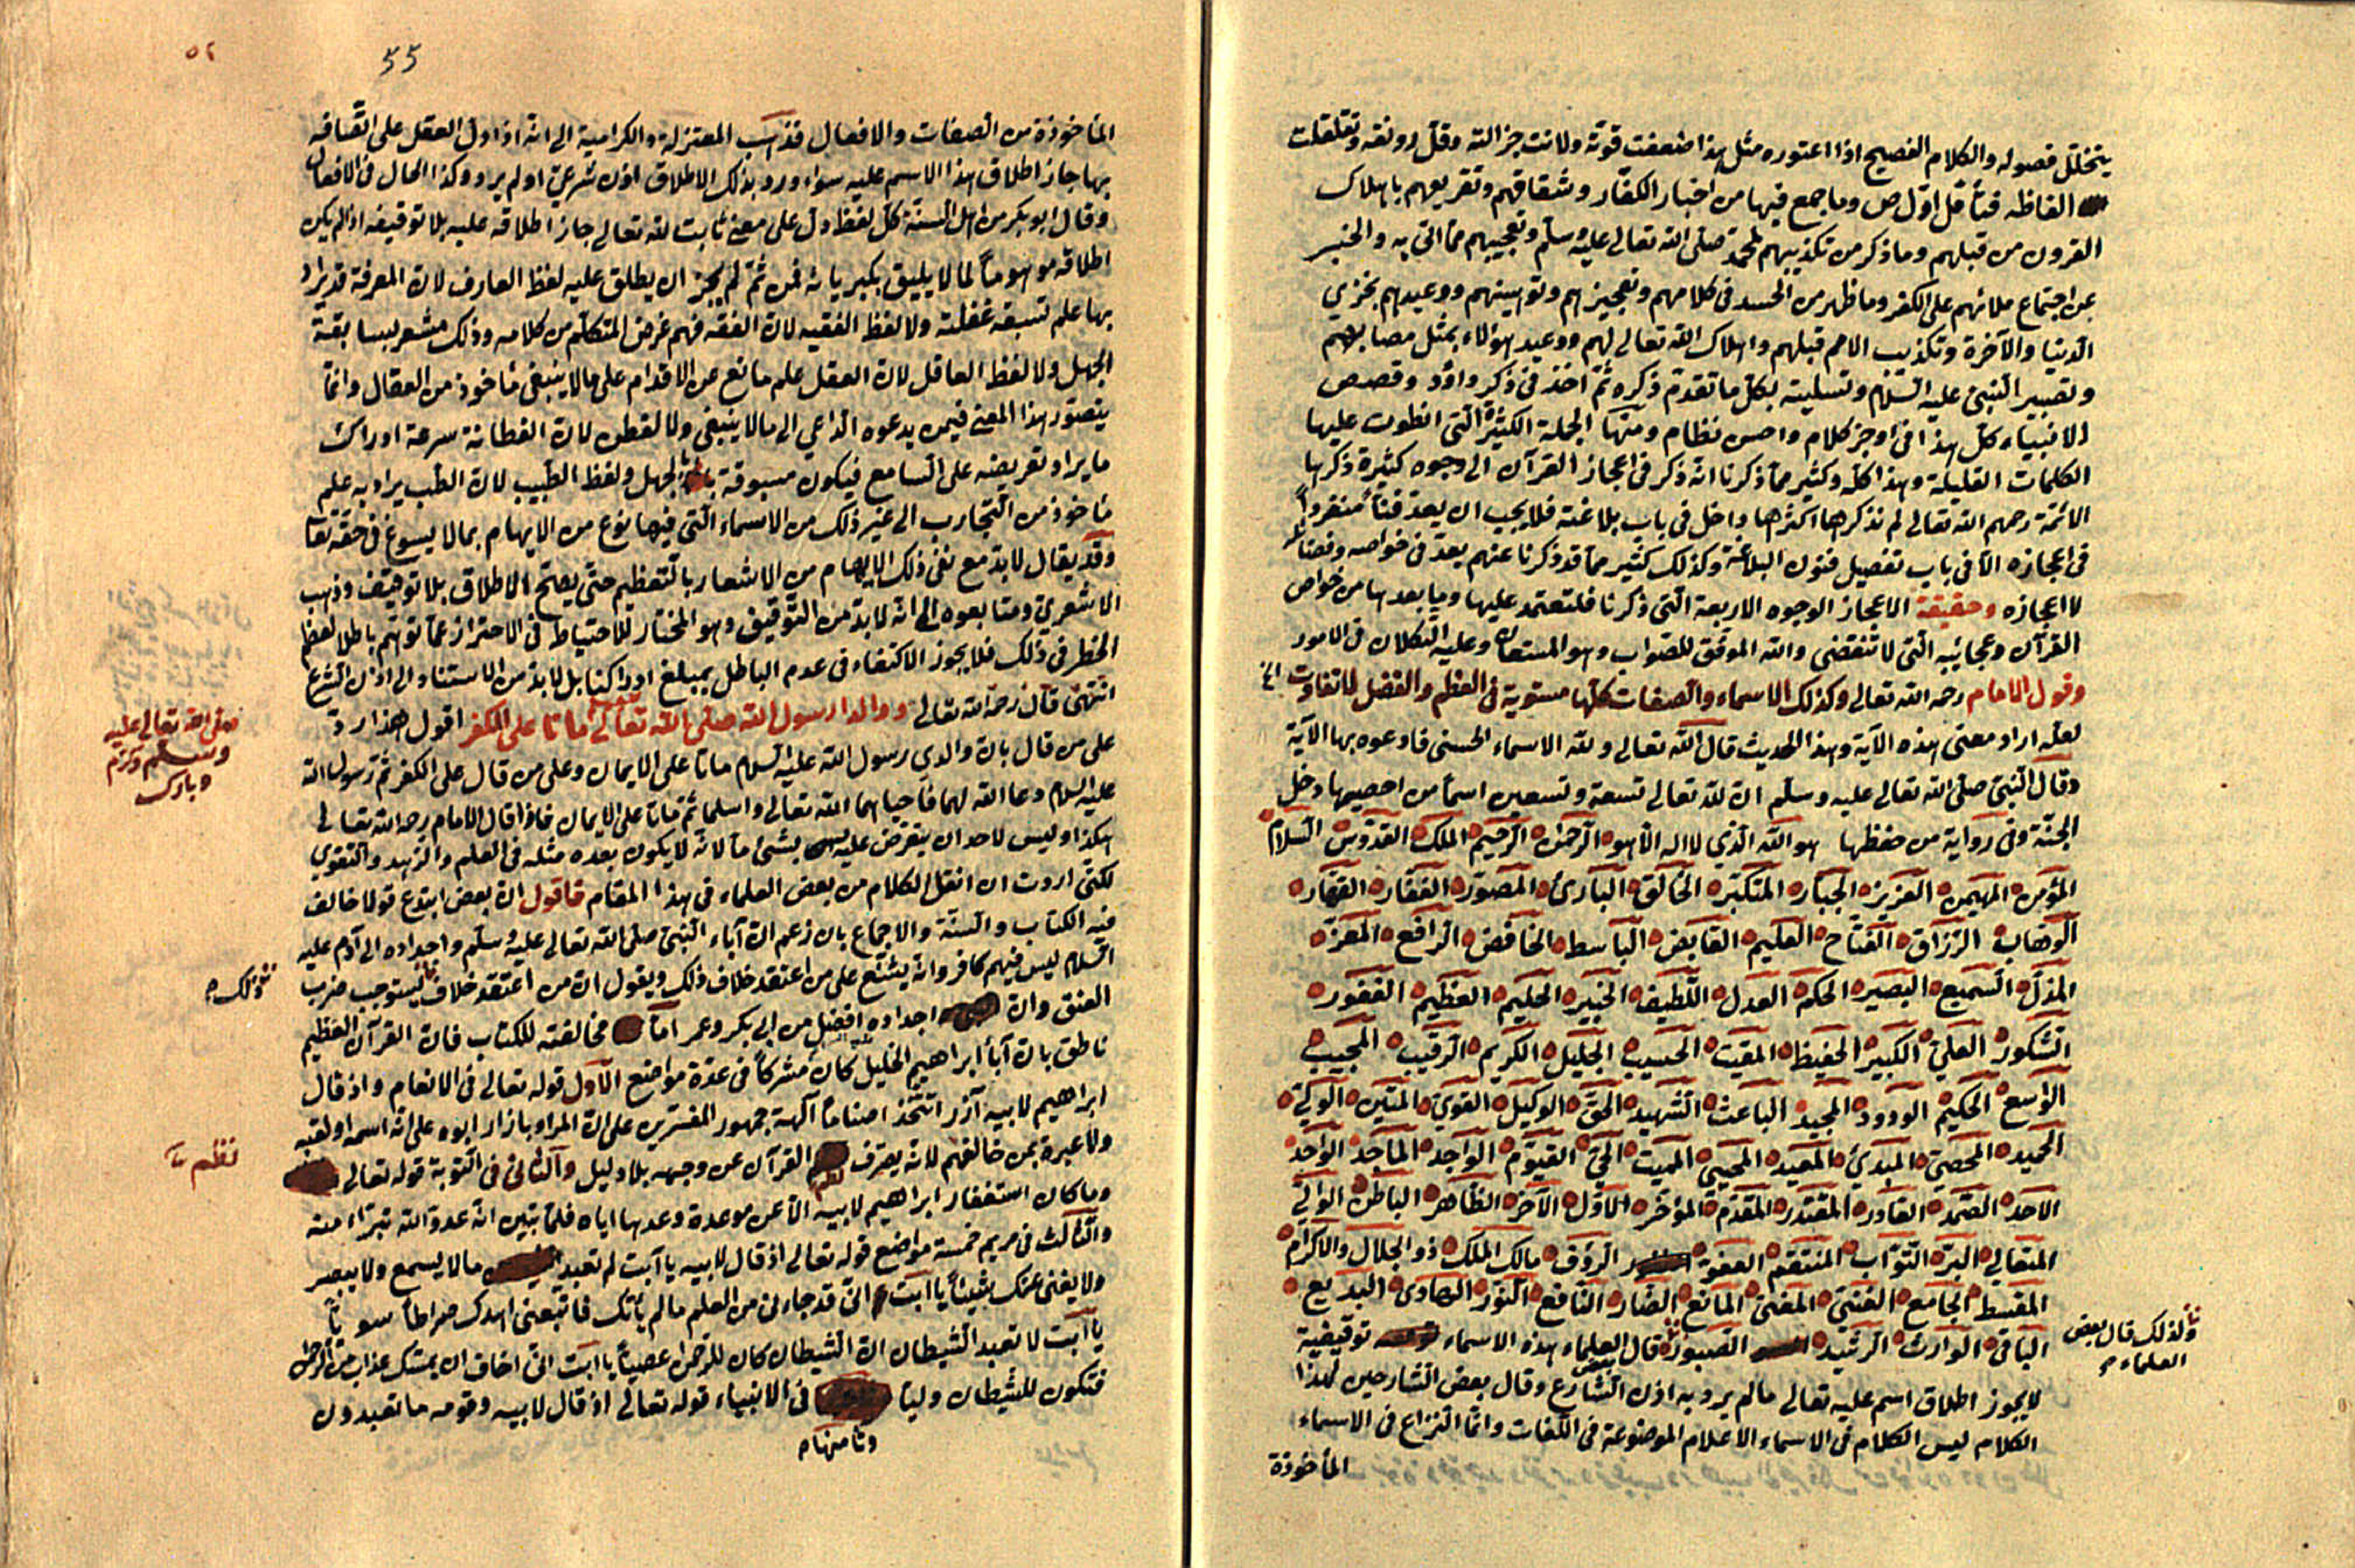 يتخلل فصوله والكلام الفصيح اذا اعتوره مثل هذا ضعفت قوته ولانت جزالته وقل رونقه وتقلقلت
الفاظه فتأمل اول ص وما جمع فيها من اخبار الكفار وشقاقهم وتقريعهم باهلاك
القرون من قبلهم وما ذكر من تكذيبهم لمحمد صلى الله تعالى عليه وسلم وتعجبهم مما اتى به والخبر
عن اجتماع ملائهم على الكفر وما ظهر من الحسد فى كلامهم وتعجيزهم وتوهينهم ووعيدهم بخزي
الدنيا والآخرة وتكذيب الامم قبلهم واهلاك الله تعالى لهم ووعيد هؤلاء بمثل مصابهم
وتصبير النبى عليه السلام وتسليته بكل ما تقدم ذكره ثم اخذ فى ذكر داؤد وقصص
الانبياء كل هذا فى اوجز كلام واحسن نظام ومنها الجملة الكثيرة التى انطوت عليها
الكلمات القليلة وهذا كله وكثير مما ذكرنا انه ذكر فى اعجاز القرآن الى وجوه كثيرة ذكرها
الائمة رحمهم الله تعالى لم نذكرها اكثرها داخل فى باب بلاغته فلا يجب ان يعد فنا منفردا
فى اعجازه الا فى باب تفصيل فنون البلاغة وكذلك كثير مما قد ذكرنا عنهم يعد فى خواصه وفضائله
لا اعجازه وحقيقة الاعجاز الوجوه الاربعة التى ذكرنا فلتعتمد عليها وما بعدها من خواص
القرآن وعجائبه التى لا تنقضى والله الموفق للصواب وهو المستعان وعليه التكلان فى الامور
وقول الامام رحمه الله تعالى وكذلك الاسماء والصفات كلها مستوية فى العظم والفضل لا تفاوت الخ
لعله اراد معنى هذه الآية وهذا الحديث قال الله تعالى ولله الاسماء الحسنى فادعوه بها الآية
وقال النبى صلى الله تعالى عليه وسلم ان لله تعالى تسعة وتسعين اسما من احصيها دخل
الجنة وفى رواية من حفظها هو الله الذي لا اله الا هو الرحمن الرحيم الملك القدوس السلام
المؤمن المهيمن العزيز الجبار المتكبر الخالق البارئ المصور الغفار القهار
الوهاب الرزاق الفتاح العليم القابض الباسط الخافض الرافع المعز
المذل السميع البصير الحكم العدل اللطيف الخبير الحليم العظيم الغفور
الشكور العلي الكبير الحفيظ المقيت الحسيب الجليل الكريم الرقيب المجيب
الواسع الحكيم الودود المجيد الباعث الشهيد الحق الوكيل القوي المتين الولي
الحميد المحصى المبدئ المعيد المحيي المميت الحي القيوم الواجد الماجد الواحد
الاحد الصمد القادر المقتدر المقدم المؤخر الاول الآخر الظاهر الباطن الوالي
المتعالي البر التواب المنتقم العفو الرؤف مالك الملك ذو الجلال والاكرام
المقسط الجامع الغنى المغنى المانع الضار النافع النور الهادى البديع
الباقى الوارث الرشيد الصبور قال العلماء هذه الاسماء توقيفية
ولذلك قال بعض
العلماء
لا يجوز اطلاق اسم عليه تعالى مالم يرد به اذن الشارع وقال بعض الشارحين لهذا
الكلام ليس الكلام فى الاسماء الاعلام الموضوعة فى اللغات وانما النزاع فى الاسماء
المأخوذة
٥٢
55
المأخوذة من الصفات والافعال فذهب المعتزلة والكرامية الى انه اذا دل العقل على اتصافه
بها جاز اطلاق هذا الاسم عليه سواء ورد بذلك الاطلاق اذن شرعي اولم يرد وكذا الحال فى الافعال
وقال ابو بكر من اهل السنة كل لفظ دل على معنى ثابت لله تعالى جاز اطلاقه عليه بلا توقيف اذا لم يكن
اطلاقه موهوما لما لا يليق بكبريائه فمن ثم لم يجز ان يطلق عليه لفظ العارف لان المعرفة قد يراد
بها علم تسبقه غفلته ولا لفظ الفقيه لان الفقه فهم غرض المتكلم من كلامه وذلك مشعر بسابقة
الجهل ولا لفظ العاقل لان العقل علم مانع عن الاقدام على مالا ينبغى مأخوذ من العقال وانما
يتصور هذا المعنى فيمن يدعوه الداعي الى مالا ينبغى ولا لفظ الفطن لان الفطانة سرعة ادراك
ما يراد تعريضه على السامع فيكون مسبوقة بالجهل ولفظ الطبيب لان الطب يراد به علم
مأخوذ من التجارب الى غير ذلك من الاسماء التى فيها نوع من الايهام بما لا يسوغ فى حقه تعا
وقد يقال لابد مع نفى ذلك الايهام من الاشعار بالتعظيم حتى يصح الاطلاق بلا توقيف وذهب
الاشعري ومتابعوه الى انه لابد من التوقيف وهو المختار للاحتياط فى الاحتراز عما توهم باطلا لعظم
الخطر فى ذلك فلا يجوز الاكتفاء فى عدم الباطل بمبلغ ادراكنا بل لابد من الاستناد الى اذن الشرع
انتهى قال رحمه الله تعالى ووالدا رسول الله صلى الله تعالى ماتا على الكفر اقول هذا رد
على من قال بان والدي رسول الله عليه السلام ماتا على الايمان وعلى من قال على الكفر ثم رسول الله
صلى الله تعالى عليه
وسلم وكرم
وبارك
عليه السلام دعا الله لهما فاحياهما الله تعالى واسلما ثم ماتا على الايمان فاذا قال الامام رحمه الله تعالى
هكذا وليس لاحد ان يتعرض عليه بشئ ما لانه لا يكون بعده مثله فى العلم والزهد والتقوى
لكنى اردت ان انقل الكلام من بعض العلماء فى هذا المقام فاقول ان بعض ابتدع قولا خالف
فيه الكتاب والسنة والاجماع بان زعم ان آباء النبى صلى الله تعالى عليه وسلم واجداده الى آدم عليه
السلام ليس فيهم كافر وانه يشنع على من اعتقد خلاف ذلك ويقول ان من اعتقد خلاف يستوجب ضرب
ذلك
العنق وان اجداده افضل من ابي بكر وعمر اما مخالفته للكتاب فان القرآن العظيم
ناطق بان أبا ابراهيم الخليل كان مشركا فى عدة مواضع الاول قوله تعالى فى الانعام واذ قال
ابراهيم لابيه آزر اتتخذ اصناما آلهة جمهور المفسرين على ان المراد بازار ابوه على انه اسمه او لقبه
ولا عبرة بمن خالفهم لانه يصرف القرآن عن وجهه بلا دليل والثانى فى التوبة قوله تعالى
نظم
وما كان استغفار ابراهيم لابيه الا عن موعدة وعدها اياه فلما تبين انه عدو لله تبراء منه
والثالث فى مريم خمسة مواضع قوله تعالى اذ قال لابيه يا ابت لم تعبد مالا يسمع ولا يبصر
ولا يغنى عنك شيئا يا ابت انى قد جاءنى من العلم ما لم يأتك فاتبعنى اهدك صراطا سويا
يا ابت لا تعبد الشيطان ان الشيطان كان للرحمن عصيا يا ابت انى اخاف ان يمسك عذاب من الرحمن
فتكون للشيطان وليا فى الانبياء قوله تعالى اذ قال لابيه وقومه ما تعبدون
وثامنها